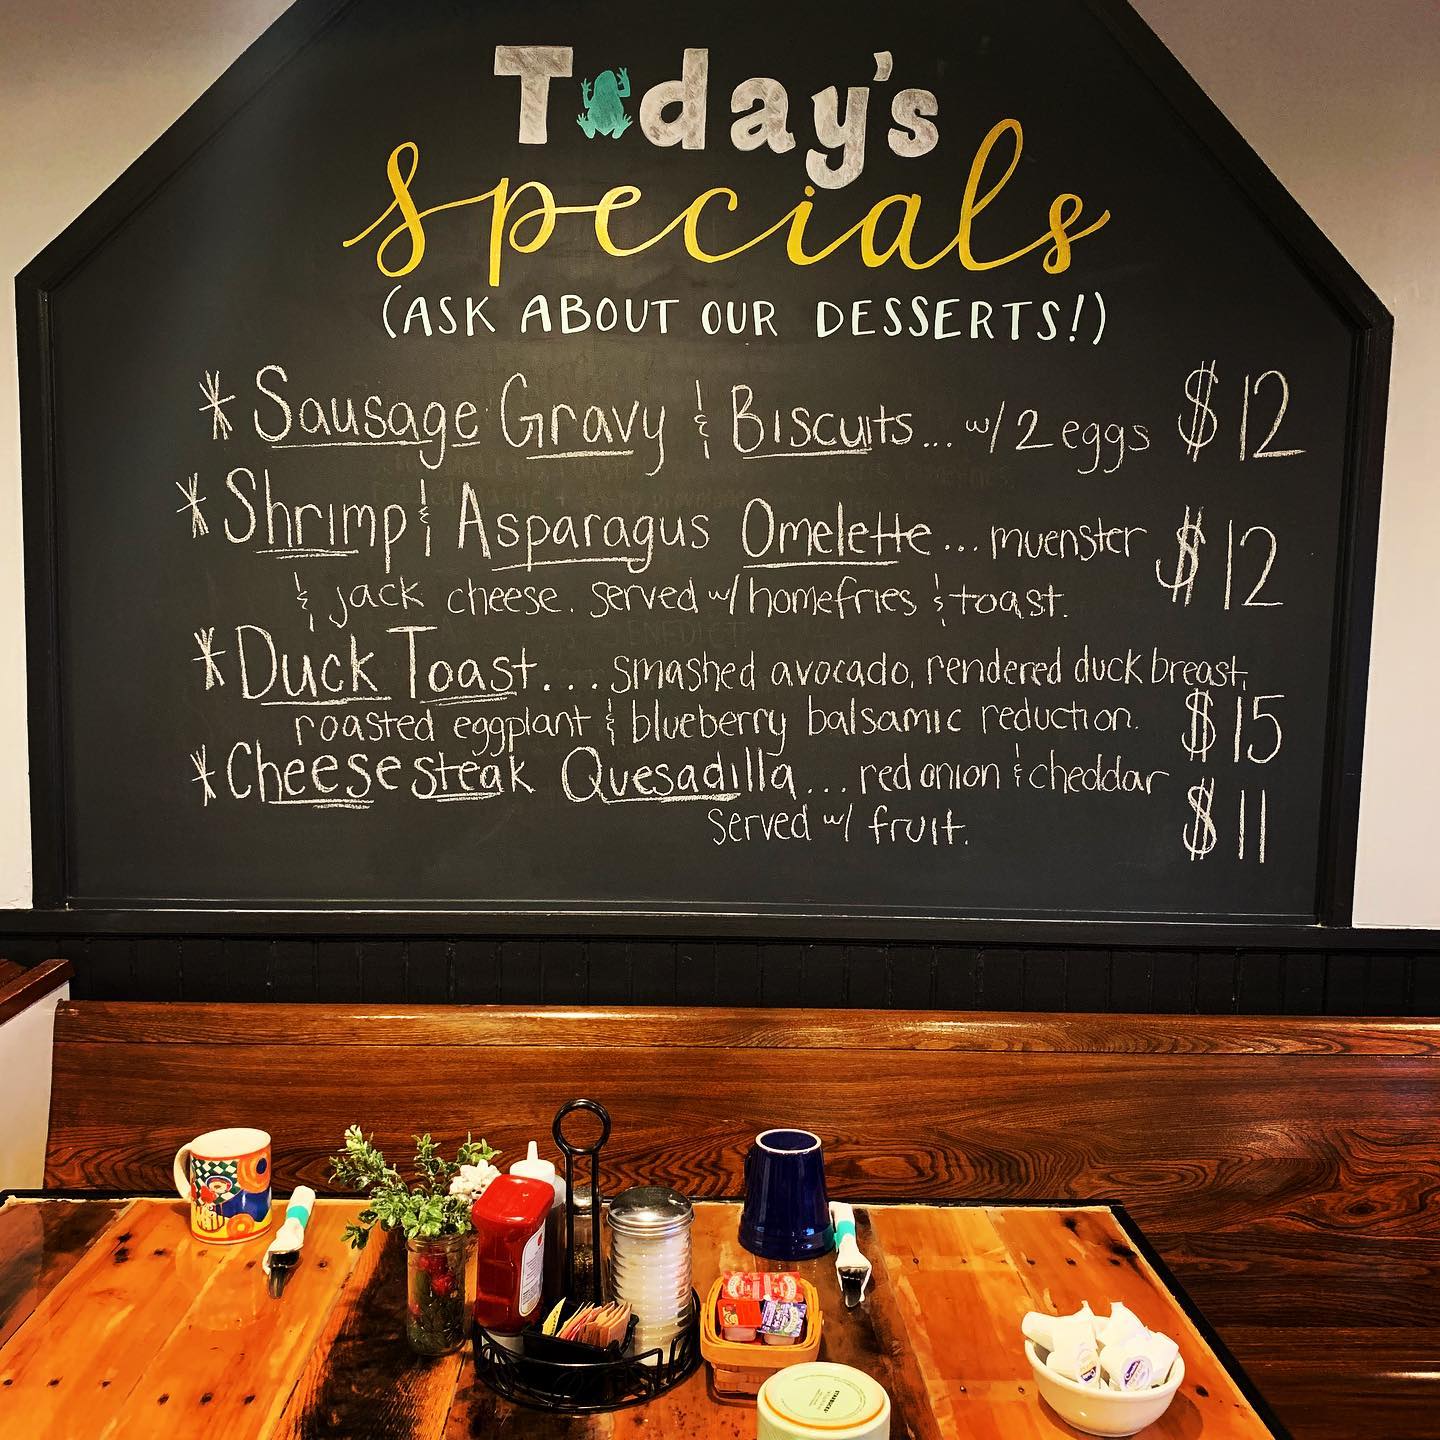 Today's
specials
(ASK ABOUT OUR DESSERTS!)
* Sausage Gravy & Biscuits... w/ 2 eggs $12
* Shrimp & Asparagus Omelette... muenster $12
& jack cheese. served w/ homefries & toast.
* Duck Toast... smashed avocado, rendered duck breast,
roasted eggplant & blueberry balsamic reduction. $15
* Cheesesteak Quesadilla... red onion & cheddar
served w/ fruit. $11